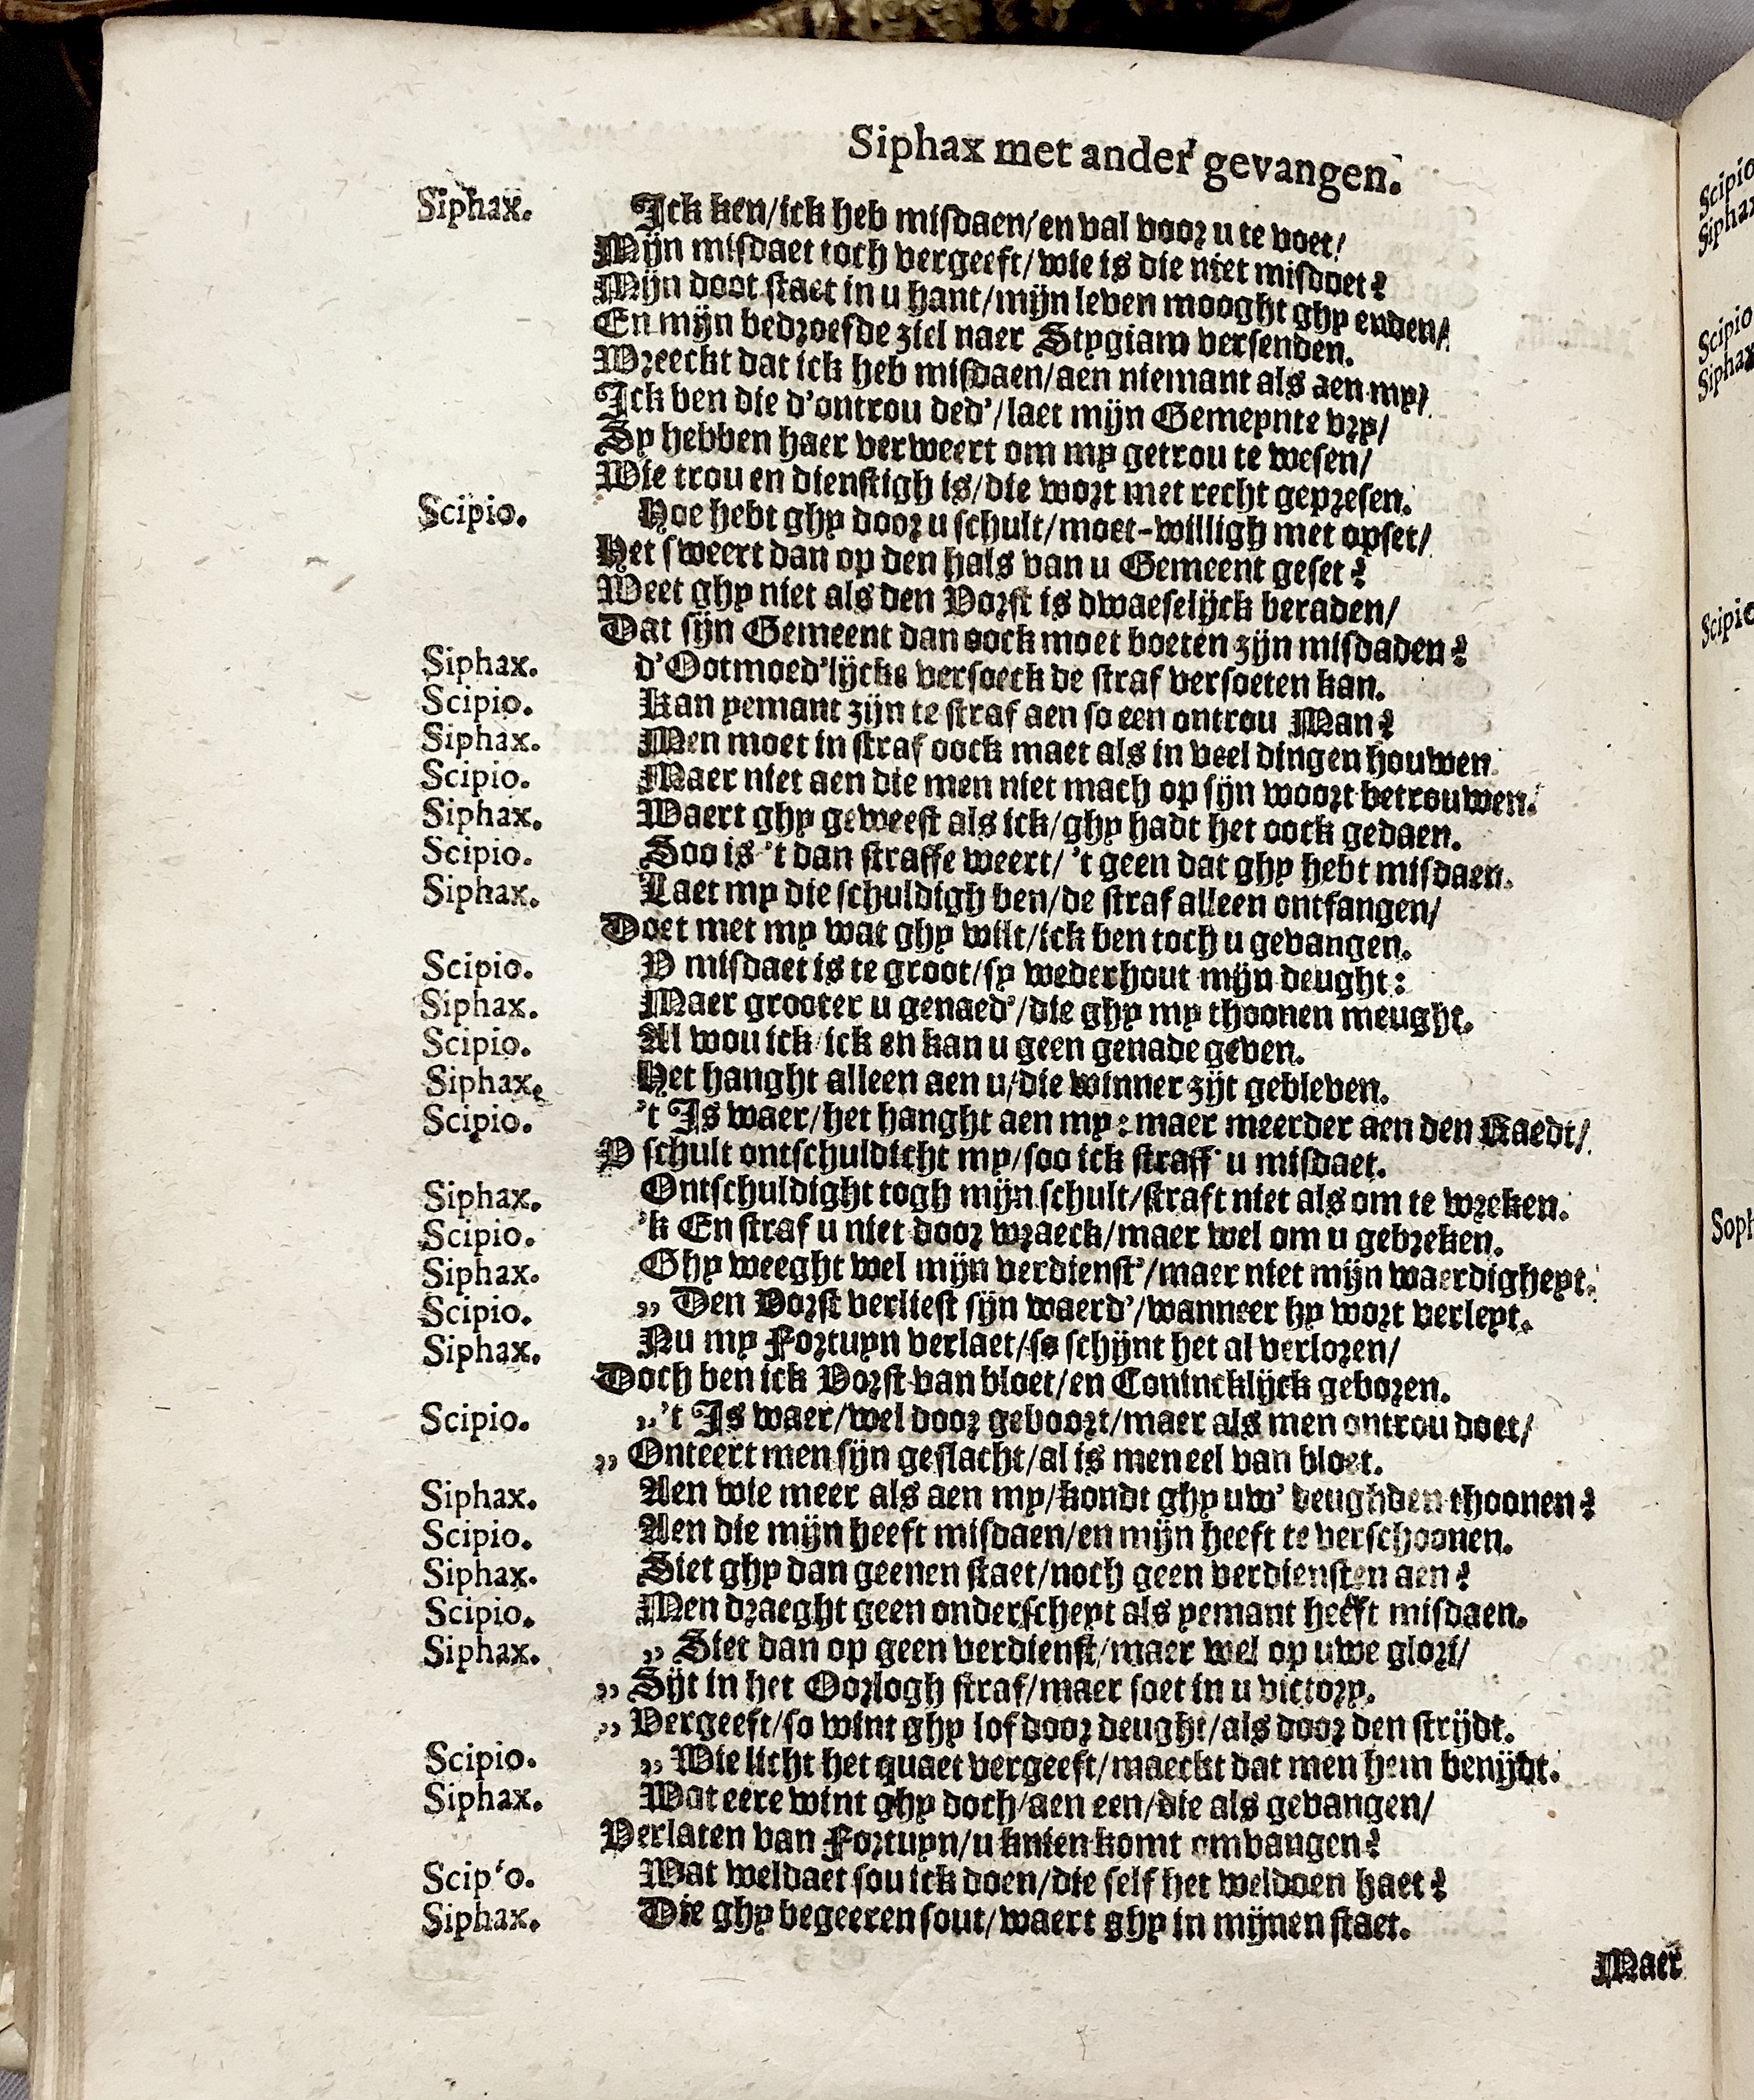 Siphax met ander' gevangen.
Siphax. Ick ken/ick heb misdaen/en val voor u te voet/
Mijn misdaet toch vergeeft/wie is die niet misdoet?
Mijn doot staet in u hant/mijn leven mooght ghy enden/
En mijn bedroefde ziel naer Stygiam versenden.
Wreeckt dat ick heb misdaen/aen niemant als aen my/
Ick ben die d'ontrou ded'/laet mijn Gemeynte vry/
Sy hebben haer verweert om my getrou te wesen/
Wie trou en dienstigh is/die wort met recht gepresen.
Scipio. Hoe hebt ghy door u schult/moet-willigh met opset/
Het sweert dan op den hals van u Gemeent geset?
Weet ghy niet als den Vorst is dwaeselijck beraden/
Dat sijn Gemeent dan oock moet boeten zijn misdaden?
Siphax. d'Ootmoed'lijcke versoeck de straf versoeten kan.
Scipio. Kan yemant zijn te straf aen so een ontrou Man?
Siphax. Men moet in straf oock maet als in veel dingen houwen.
Scipio. Maer niet aen die men niet mach op sijn woort betrouwen.
Siphax. Waert ghy geweest als ick/ghy hadt het oock gedaen.
Scipio. Soo is 't dan straffe weert/ 't geen dat ghy hebt misdaen.
Siphax. Laet my die schuldigh ben/de straf alleen ontfangen/
Doet met my wat ghy wilt/ick ben toch u gevangen.
Scipio. V misdaet is te groot/sy wederhout mijn deught:
Siphax. Maer grooter u genaed'/die ghy my thoonen meught.
Scipio. Al wou ick/ick en kan u geen genade geven.
Siphax. Het hanght alleen aen u/die winner zijt gebleven.
Scipio. 't Is waer/het hanght aen my: maer meerder aen den Raedt/
V schult ontschuldicht my/soo ick straff' u misdaet.
Siphax. Ontschuldight togh mijn schult/straft niet als om te wreken.
Scipio. 'k En straf u niet door wraeck/maer wel om u gebreken.
Siphax. Ghy weeght wel mijn verdienst'/maer niet mijn waerdigheyt.
Scipio. ,, Den Vorst verliest sijn waerd'/wanneer hy wort verleyt.
Siphax. Nu my Fortuyn verlaet/so schijnt het al verloren/
Doch ben ick Vorst van bloet/en Conincklijck geboren.
Scipio. ,,'t Is waer/wel door geboort/maer als men ontrou doet/
,, Onteert men sijn geslacht/al is men eel van bloet.
Siphax. Aen wie meer als aen my/kondt ghy uw' deughden thoonen?
Scipio. Aen die mijn heeft misdaen/en mijn heeft te verschoonen.
Siphax. Siet ghy dan geenen staet/noch geen verdiensten aen?
Scipio. Men draeght geen onderscheyt als yemant heeft misdaen.
Siphax. ,, Siet dan op geen verdienst/maer wel op uwe glori/
,, Sijt in het Oorlogh straf/maer soet in u victory.
,, Vergeeft/so wint ghy lof door deught/als door den strijdt.
Scipio. ,, Wie licht het quaet vergeeft/maeckt dat men hem benijdt.
Siphax. Wat eere wint ghy doch/aen een/die als gevangen/
Verlaten van Fortuyn/u knien komt omvangen?
Scip'o. Wat weldaet sou ick doen/die self het weldoen haet?
Siphax. Die ghy begeeren sout/waert ghy in mijnen staet.
Maer
Scipio
Siphax
Scipio
Siphax
Scipio
Soph